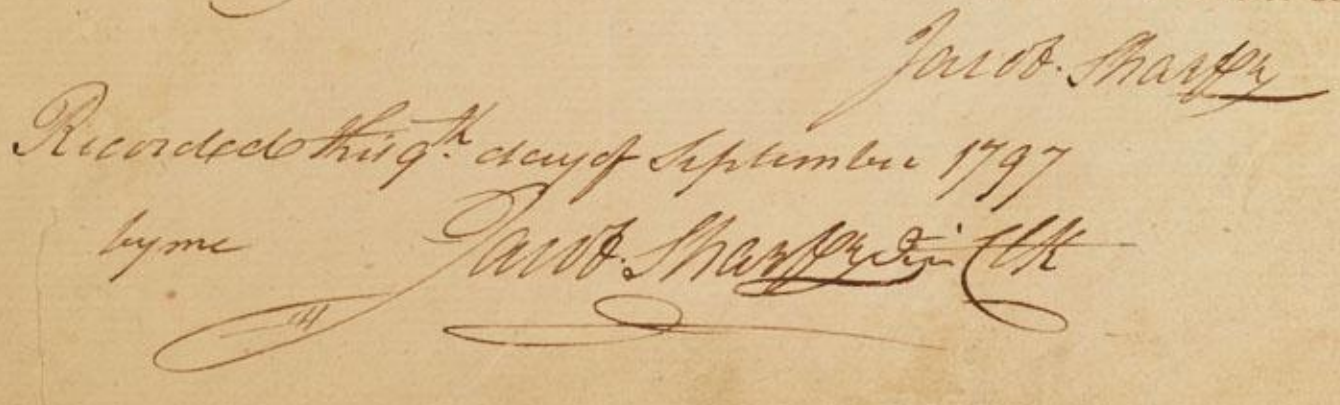 Jacob. Sharpe
Recorded this 9th. day of September 1797
by me Jacob. Sharpe Jun Clk